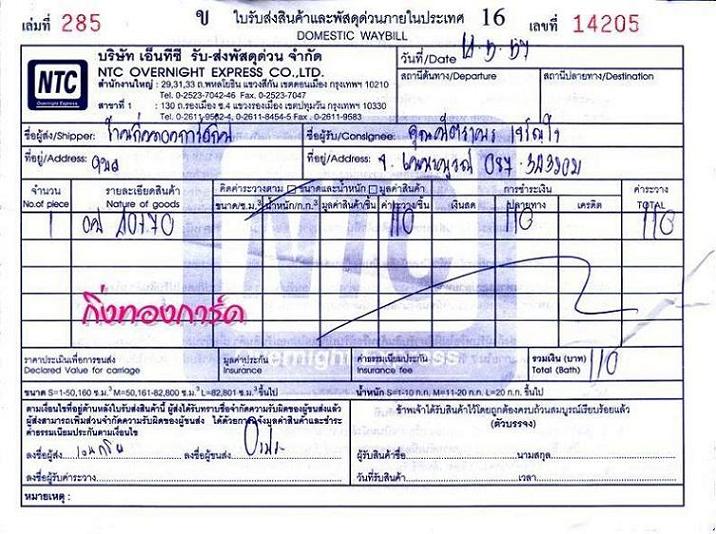 เล่มที่ 285 ข ใบรับส่งสินค้าและพัสดุด่วนภายในประเทศ 16 เลขที่ 14205
DOMESTIC WAYBILL
NTC
Overnight Express
บริษัท เอ็นทีซี รับ-ส่งพัสดุด่วน จำกัด
NTC OVERNIGHT EXPRESS CO.,LTD.
สำนักงานใหญ่ : 29,31,33 ถ.พหลโยธิน แขวงสีกัน เขตดอนเมือง กรุงเทพฯ 10210
Tel. 0-2523-7042-46 Fax. 0-2523-7047
สาขาที่ 1 : 130 ถ.รองเมือง ซ.4 แขวงรองเมือง เขตปทุมวัน กรุงเทพฯ 10330
Tel. 0-2611-9582-4, 0-2611-8454-5 Fax. 0-2611-9583
วันที่/Date
สถานีต้นทาง/Departure สถานีปลายทาง/Destination
ชื่อผู้ส่ง/Shipper: ชื่อผู้รับ/Consignee:
ที่อยู่/Address: ที่อยู่/Address:
จำนวน รายละเอียดสินค้า คิดค่าระวางตาม ขนาดและน้ำหนัก มูลค่าสินค้า การชำระเงิน ค่าระวาง
No.of piece Nature of goods ขนาด/ซ.ม.³ น้ำหนัก/ก.ก.³ มูลค่าสินค้า/ชิ้น ค่าระวาง/ชิ้น เงินสด ปลายทาง เครดิต TOTAL
1 110 110 110
กิ่งทองการ์ด
ราคาประเมินเพื่อการขนส่ง มูลค่าประกัน ค่าธรรมเนียมประกัน รวมเงิน (บาท) 110
Declared Value for carriage Insurance Insurance fee Total (Bath)
ขนาด S=1-50,160 ซ.ม.³ M=50,161-82,800 ซ.ม.³ L=82,801 ซ.ม.³ ขึ้นไป น้ำหนัก S=1-10 ก.ก. M=11-20 ก.ก. L=20 ก.ก. ขึ้นไป
ตามเงื่อนไขที่อยู่ด้านหลังใบรับส่งสินค้านี้ ผู้ส่งได้รับทราบข้อจำกัดความรับผิดของผู้ขนส่งแล้ว
ผู้ส่งสามารถเพิ่มส่วนจำกัดความรับผิดของผู้ขนส่ง ได้ด้วยการแจ้งมูลค่าสินค้าและชำระ
ค่าธรรมเนียมประกันตามเงื่อนไข
ข้าพเจ้าได้รับสินค้าไว้โดยถูกต้องครบถ้วนสมบูรณ์เรียบร้อยแล้ว
(ตัวบรรจง)
ลงชื่อผู้ส่ง ลงชื่อผู้ขนส่ง ผู้รับสินค้าชื่อ นามสกุล
ลงชื่อผู้รับค่าระวาง วันที่รับสินค้า เวลา
หมายเหตุ :